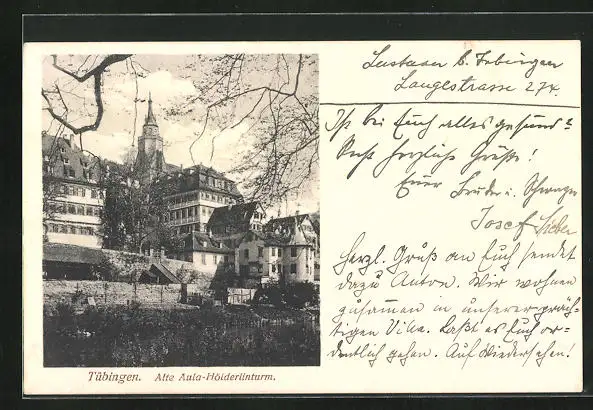 Lustnau b. Tübingen
Langestrasse 27
Ist bei Euch alles gesund?
Recht herzliche Grüße!
Euer Bruder u. Schwager
Josef
Herzl. Gruß an Euch sendet
dazu Anton. Wir wohnen
zusammen in unserer präch-
tigen Villa. Laßt es Euch or-
dentlich gehen. Auf Wiedersehen!
Tübingen. Alte Aula-Hölderlinturm.